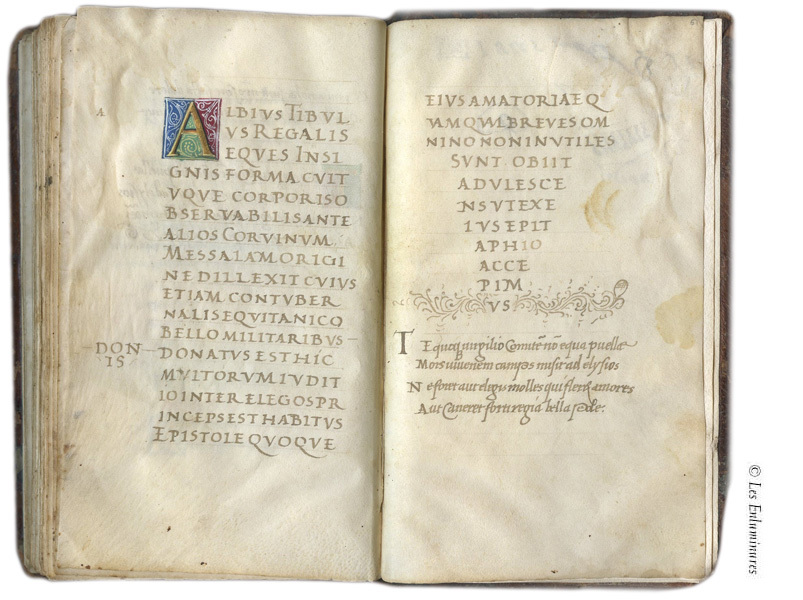 A
ALBIVS TIBVL
VS REGALIS
EQVES INSI
GNIS FORMA CVLT
VQVE CORPORIS O
BSERVABILIS ANTE
ALIOS CORVINVM
MESSALAM ORIGI
NE DILLEXIT CVIVS
ETIAM CONTVBER
NALIS EQVITANICO
BELLO MILITARIBVS
DON
IS
DONATVS EST HIC
MVLTORVM IVDIT
IO INTER ELEGOS PR
INCEPS EST HABITVS
EPISTOLE QVOQVE
61
EIVS AMATORIAE Q
VAMQVI BREVES OM
NINO NON INVTILES
SVNT OBIIT
ADVLESCE
NS VT EXE
IVS EPIT
APHIO
ACCE
PIM
VS
Te quoq; uirgilio Comitē nō equa puella
Mors iuuenem campos misit ad elysios
Ne foret aut elegis molles qui fleret amores
Aut Caneret forti regia bella pede:
© Les Enluminures